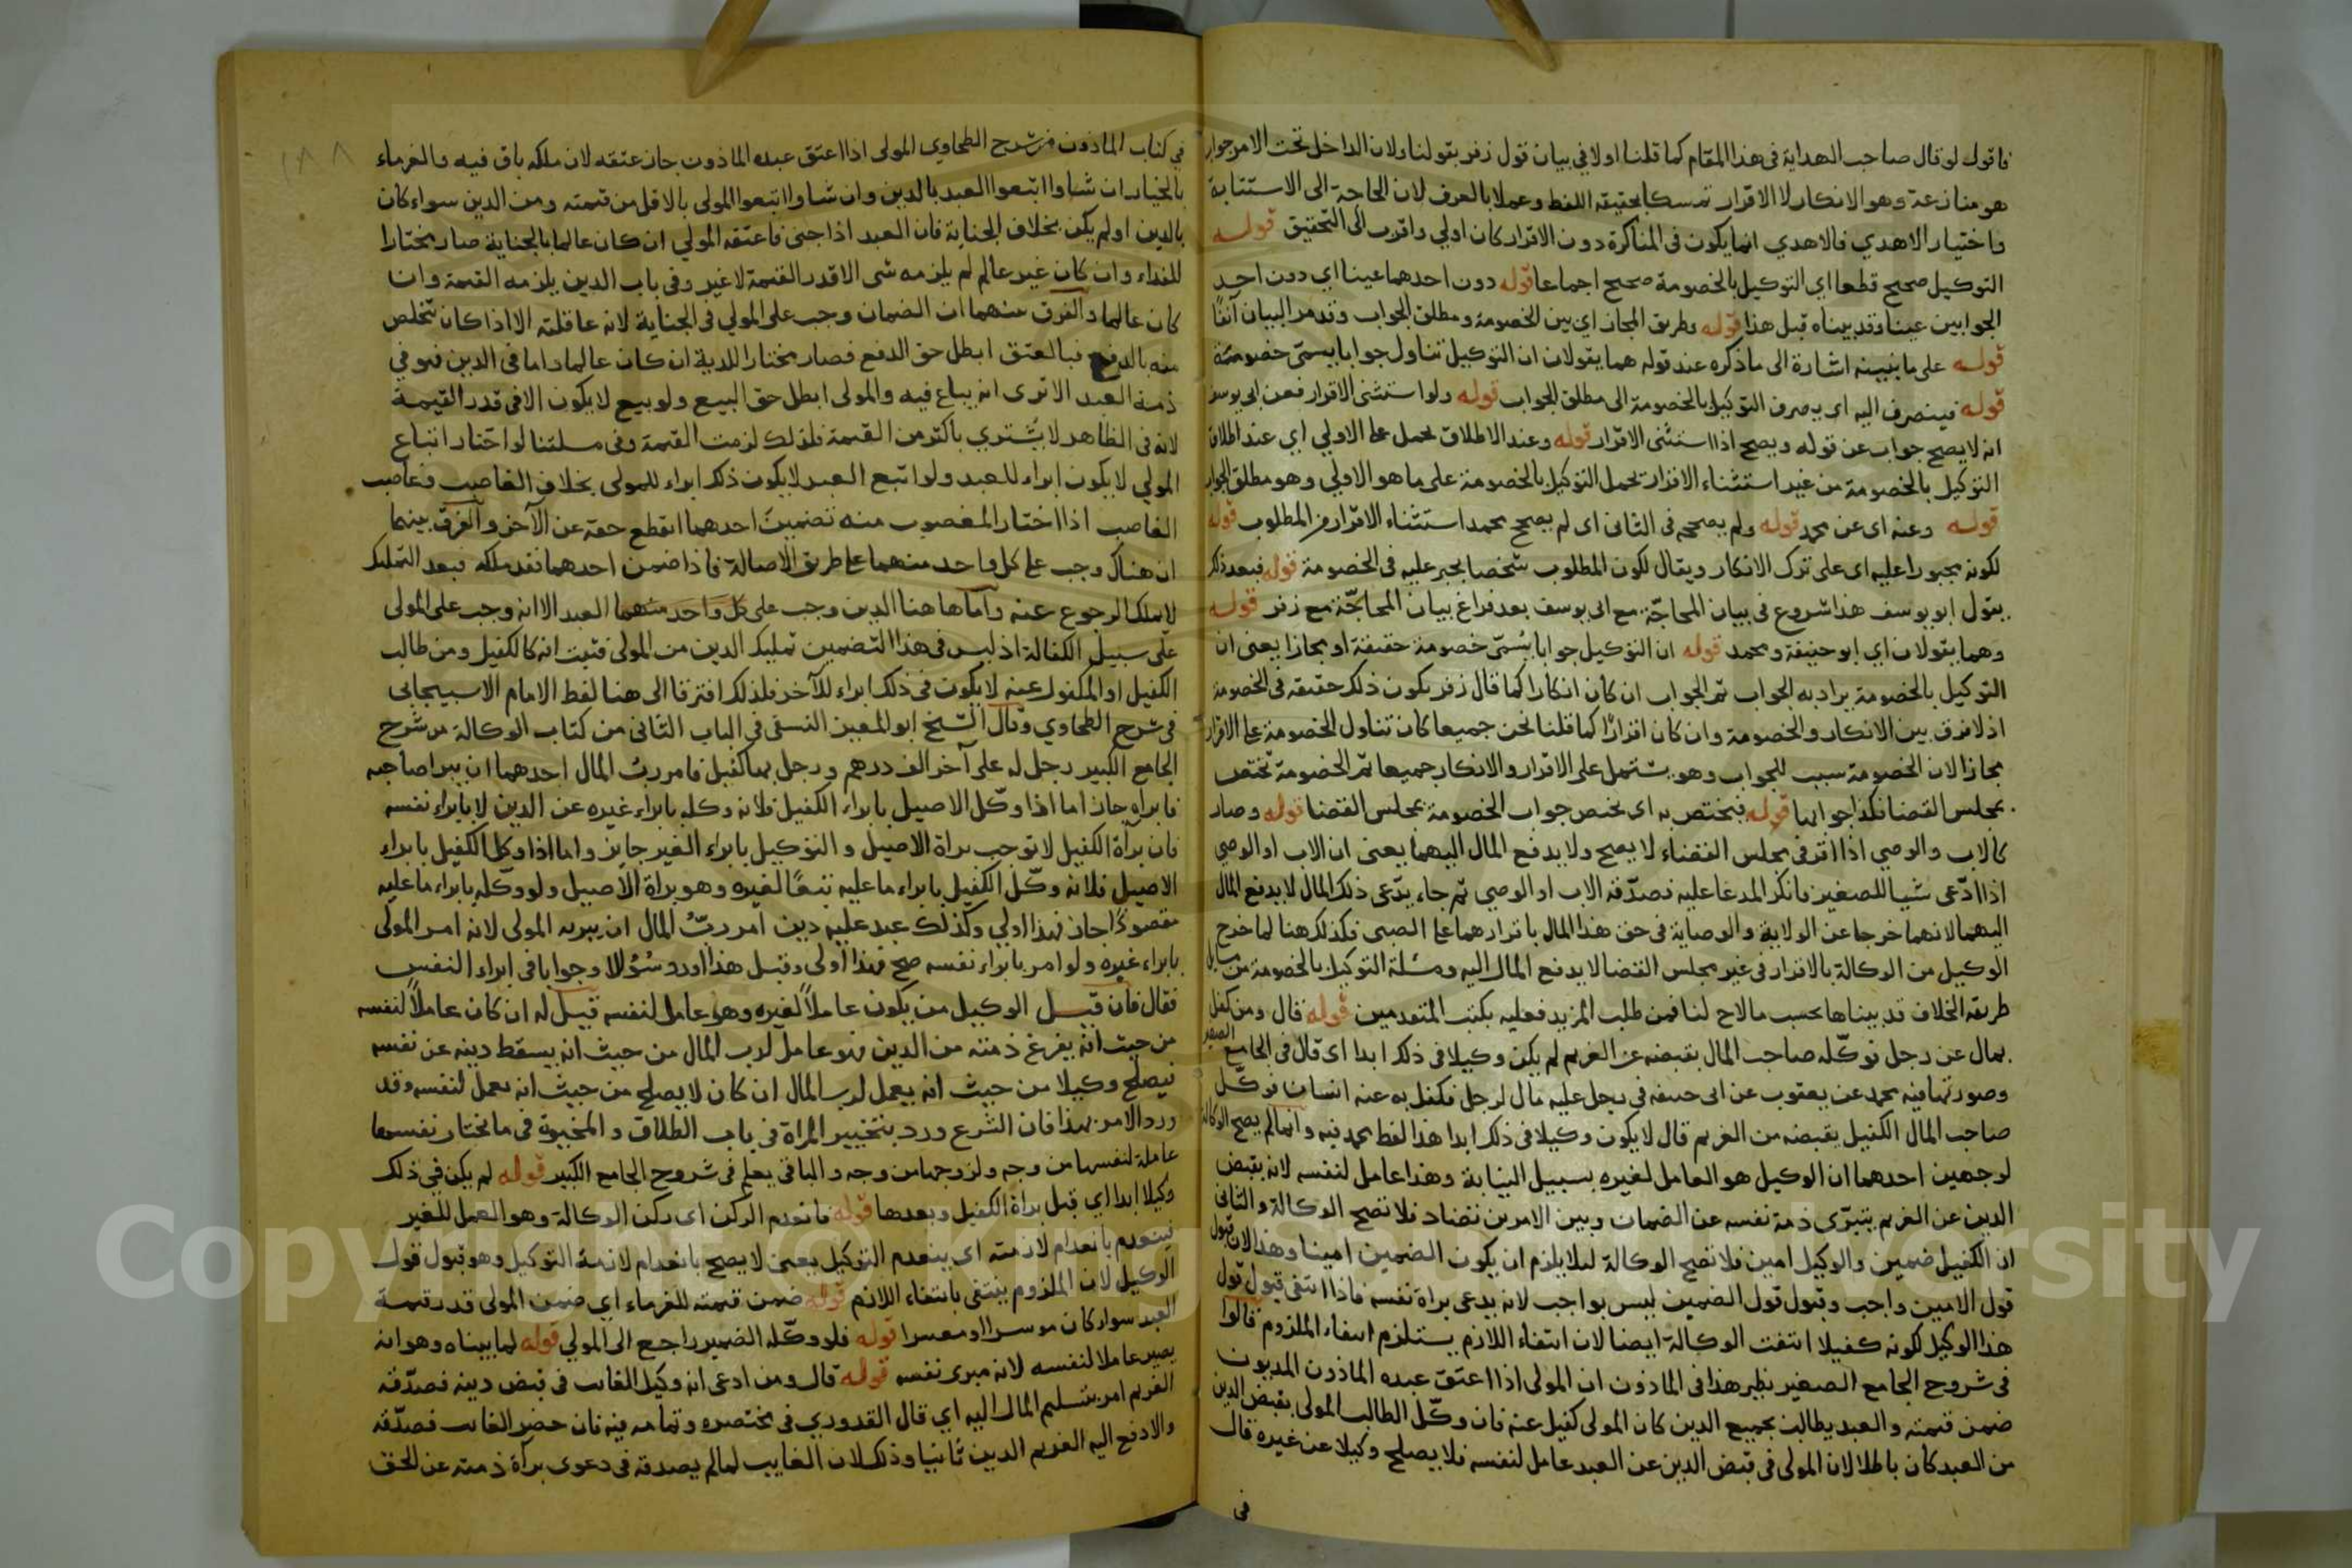 فاقول لو قال صاحب الهداية في هذا المقام كما قلنا اولا في بيان قول زفر بقولنا ولان الداخل تحت الامر جواب
هو منازعة وهو الانكار لا الاقرار تمسكا بحقيقة اللفظ وعملا بالعرف لان الحاجة الى الاستنابة
واختيار الاهدي فالاهدي انما يكون في المناكرة دون الاقرار كان اولي واقرب الى التحقيق قوله
التوكيل صحيح قطعا اي التوكيل بالخصومة صحيح اجماعا قوله دون احدهما عينا اي دون احد
الجوابين عينا وقد بيناه قبل هذا قوله وطريق المجاز اي بين الخصومة ومطلق الجواب وقد مر البيان آنفًا
قوله على ما نبينه اشارة الى ما ذكره عند قوله هما يقولان ان التوكيل تناول جوابا يسمى خصومة
قوله فينصرف اليه اي يصرف التوكيل بالخصومة الى مطلق الجواب قوله ولو استثنى الاقرار فعن ابي يوسف
انه لا يصح جواب عن قوله ويصح اذا استثنى الاقرار قوله وعند الاطلاق يحمل على الاولي اي عند اطلاق
التوكيل بالخصومة من غير استثناء الاقرار يحمل التوكيل بالخصومة على ما هو الاولي وهو مطلق الجواب
قوله وعنه اي عن محمد قوله ولم يصححه في الثاني اي لم يصحح محمد استثناء الاقرار من المطلوب قوله
لكونه مجبورا عليه اي على ترك الانكار ويقال لكون المطلوب شخصا يجبر عليه في الخصومة قوله فبعد ذلك
يقول ابو يوسف هذا شروع في بيان المحاجّة مع ابي يوسف بعد فراغ بيان المحاجّة مع زفر قوله
وهما يقولان اي ابو حنيفة ومحمد قوله ان التوكيل جوابا يُسمّى خصومة حقيقة او مجازا يعني ان
التوكيل بالخصومة يراد به الجواب ثم الجواب ان كان انكارا كما قال زفر يكون ذلك حقيقة في الخصومة
اذ لا فرق بين الانكار والخصومة وان كان اقرارًا كما قلنا نحن جميعا كان تناول الخصومة على الاقرار
مجازا لان الخصومة سبب للجواب وهو يشتمل على الاقرار والانكار جميعا ثم الخصومة تختص
بمجلس القضا فكذا جوابها قوله فيختص به اي يختص جواب الخصومة بمجلس القضا قوله وصار
كالاب والوصي اذا اقر في مجلس القضاء لا يصح ولا يدفع المال اليهما يعني ان الاب او الوصي
اذا ادّعى شيا للصغير فانكر المدعا عليه فصدّقه الاب او الوصي ثم جاء يدّعى ذلك المال لا يدفع المال
اليهما لانهما خرجا عن الولاية والوصاية في حق هذا المال باقرارهما على الصبي فكذلك هنا لما خرج
الوكيل من الوكالة بالاقرار في غير مجلس القضا لا يدفع المال اليه ومسئلة التوكيل بالخصومة من مسايل
طريقة الخلاف قد بيناها بحسب ما لاح لنا فمن طلب المزيد فعليه بكتب المتقدمين قوله قال ومن كفل
بمال عن رجل فوكّله صاحب المال بقبضه عن الغريم لم يكن وكيلا في ذلك ابدا اي قال في الجامع الصغير
وصورتها فيه محمد عن يعقوب عن ابي حنيفة في رجل عليه مال لرجل فكفل به عنه انسان فوكّل
صاحب المال الكفيل يقبضه من الغريم قال لا يكون وكيلا في ذلك ابدا هذا لفظ محمد فيه وانما لم يصح الوكالة
لوجهين احدهما ان الوكيل هو العامل لغيره بسبيل النيابة وهذا عامل لنفسه لانه يقبض
الدين عن الغريم يتبرّى ذمة نفسه عن الضمان وبين الامرين تضاد فلا تصح الوكالة والثاني
ان الكفيل ضمين والوكيل امين فلا تصح الوكالة ليلا يلزم ان يكون الضمين امينا وهذا لان قبول
قول الامين واجب وقبول قول الضمين ليس بواجب لانه يدعى براة نفسه فاذا انتفى قبول قول
هذا الوكيل لكونه كفيلا انتفت الوكالة ايضا لان انتفاء اللازم يستلزم انتفاء الملزوم قالوا
في شروح الجامع الصغير نظير هذا في الماذون ان المولى اذا اعتق عبده الماذون المديون
ضمن قيمته والعبد يطالب بجميع الدين كان المولى كفيل عنه فان وكّل الطالب المولى بقبض الدين
من العبد كان باطلا لان المولى في قبض الدين عن العبد عامل لنفسه فلا يصلح وكيلا عن غيره قال
في
١٨٨
في كتاب الماذون من شرح الطحاوي المولى اذا اعتق عبده الماذون جاز عتقه لان ملكه باق فيه والغرماء
بالخيار ان شاوا اتبعوا العبد بالدين وان شاوا اتبعوا المولى بالاقل من قيمته ومن الدين سواء كان
بالدين او لم يكن بخلاف الجناية فان العبد اذا جنى فاعتقه المولي ان كان عالما بالجناية صار مختارا
للفداء وان كان غير عالم لم يلزمه شى الا قدر القيمة لا غير وفي باب الدين يلزمه القيمة وان
كان عالما والفرق منهما ان الضمان وجب على المولي في الجناية لانه عاقلته الا اذا كان تخلص
منه بالدفع فبالعتق ابطل حق الدفع فصار مختارا للدية ان كان عالما واما في الدين فهو في
ذمة العبد الا ترى انه يباع فيه والمولى ابطل حق البيع ولو بيع لا يكون الا في قدر القيمة
لانه في الظاهر لا يُشتري باكثر من القيمة فلذلك لزمت القيمة وفي مسلتنا لو اختار اتباع
المولي لا يكون ابراء للعبد ولو اتبع العبد لا يكون ذلك ابراء للمولى بخلاف الغاصب وغاصب
الغاصب اذا اختار المغصوب منه تضمين احدهما انقطع حقه عن الآخر والفرق بينهما
ان هناك وجب على كل واحد منهما على طريق الاصالة فاذا ضمن احدهما فقد ملكه فبعد التمليك
لا يملك الرجوع عنه واما هاهنا الدين وجب على كل واحد منهما العبد الا انه وجب على المولى
على سبيل الكفالة اذ ليس في هذا التضمين تمليك الدين من المولى فثبت انه كالكفيل ومن طالب
الكفيل او المكفول عنه لا يكون في ذلك ابراء للآخر فلذلك افترقا الى هنا لفظ الامام الاسبيجابي
في شرح الطحاوي وقال الشيخ ابو المعين النسفي في الباب الثاني من كتاب الوكالة من شرح
الجامع الكبير رجل له على آخر الف درهم ورجل بها كفيل فامر ربُّ المال احدهما ان يبرا صاحبه
فابراه جاز اما اذا وكّل الاصيل بابراء الكفيل فلانه وكله بابراء غيره عن الدين لا بابراء نفسه
فان برأة الكفيل لا توجب براة الاصيل والتوكيل بابراء الغير جايز واما اذا وكل الكفيل بابراء
الاصيل فلانه وكّل الكفيل بابراء ما عليه تبعًا لغيره وهو براة الاصيل ولو وكّله بابراء ما عليه
مقصودًا جاز فهذا اولي وكذلك عبد عليه دين امر ربّ المال ان يبريه المولى لانه امر المولى
بابراء غيره ولو امر بابراء نفسه صح فهذا اولى وقبل هذا اورد سُؤلا وجوابا في ابراء النفس
فقال فان قيل الوكيل من يكون عاملاً لغيره وهو عامل لنفسه قيل له ان كان عاملاً لنفسه
من حيث انه يفرغ ذمته من الدين فهو عامل لرب المال من حيث انه يسقط دينه عن نفسه
فيصلح وكيلا من حيث انه يعمل لرب المال ان كان لا يصلح من حيث انه يعمل لنفسه وقد
ورد الامر بهذا فان الشرع ورد بتخيير المراة في باب الطلاق والمخيرة في ما تختار نفسها
عاملة لنفسها من وجه ولزوجها من وجه والباقي يعلم في شروح الجامع الكبير قوله لم يكن في ذلك
وكيلا ابدا اي قبل براة الكفيل وبعدها قوله فانعدم الركن اي ركن الوكالة وهو العمل للغير
فينعدم بانعدام لازمته اي ينعدم التوكيل يعني لا يصح بانعدام لازمة التوكيل وهو قبول قول
الوكيل لان الملزوم ينتفى بانتفاء اللازم قوله ضمن قيمته للغرماء اي ضمن المولى قدر قيمة
العبد سواء كان موسرا او معسرا قوله فلو وكّله الضمير راجع الى المولي قوله لما بيناه وهو انه
يصير عاملا لنفسه لانه مبرى نفسه قوله قال ومن ادعى انه وكيل الغائب في قبض دينه فصدّقه
الغريم امر بتسليم المال اليه اي قال القدوري في مختصره وتمامه فيه فان حضر الغائب فصدّقه
والا دفع اليه الغريم الدين ثانيا وذلك لان الغايب لما لم يصدقه في دعوى برأة ذمته عن الحق
Copyright © King Saud University